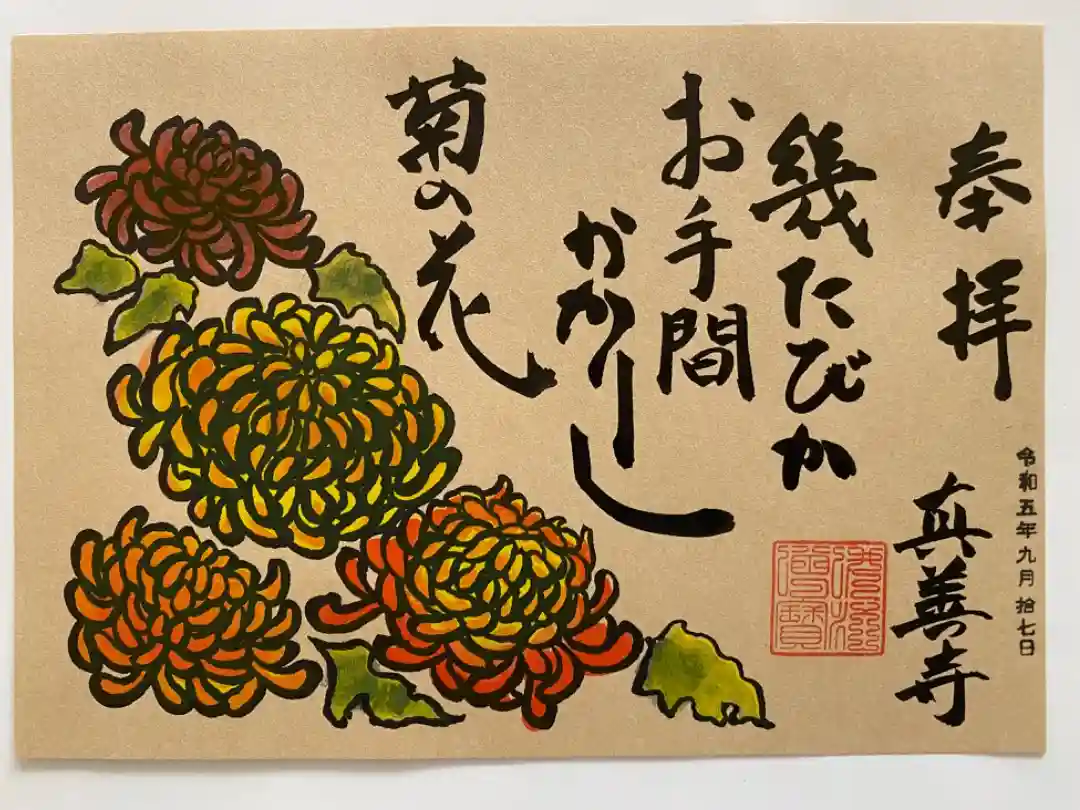 奉拝
真善寺
令和五年九月拾七日
幾たびか
お手間
かかりし
菊の花